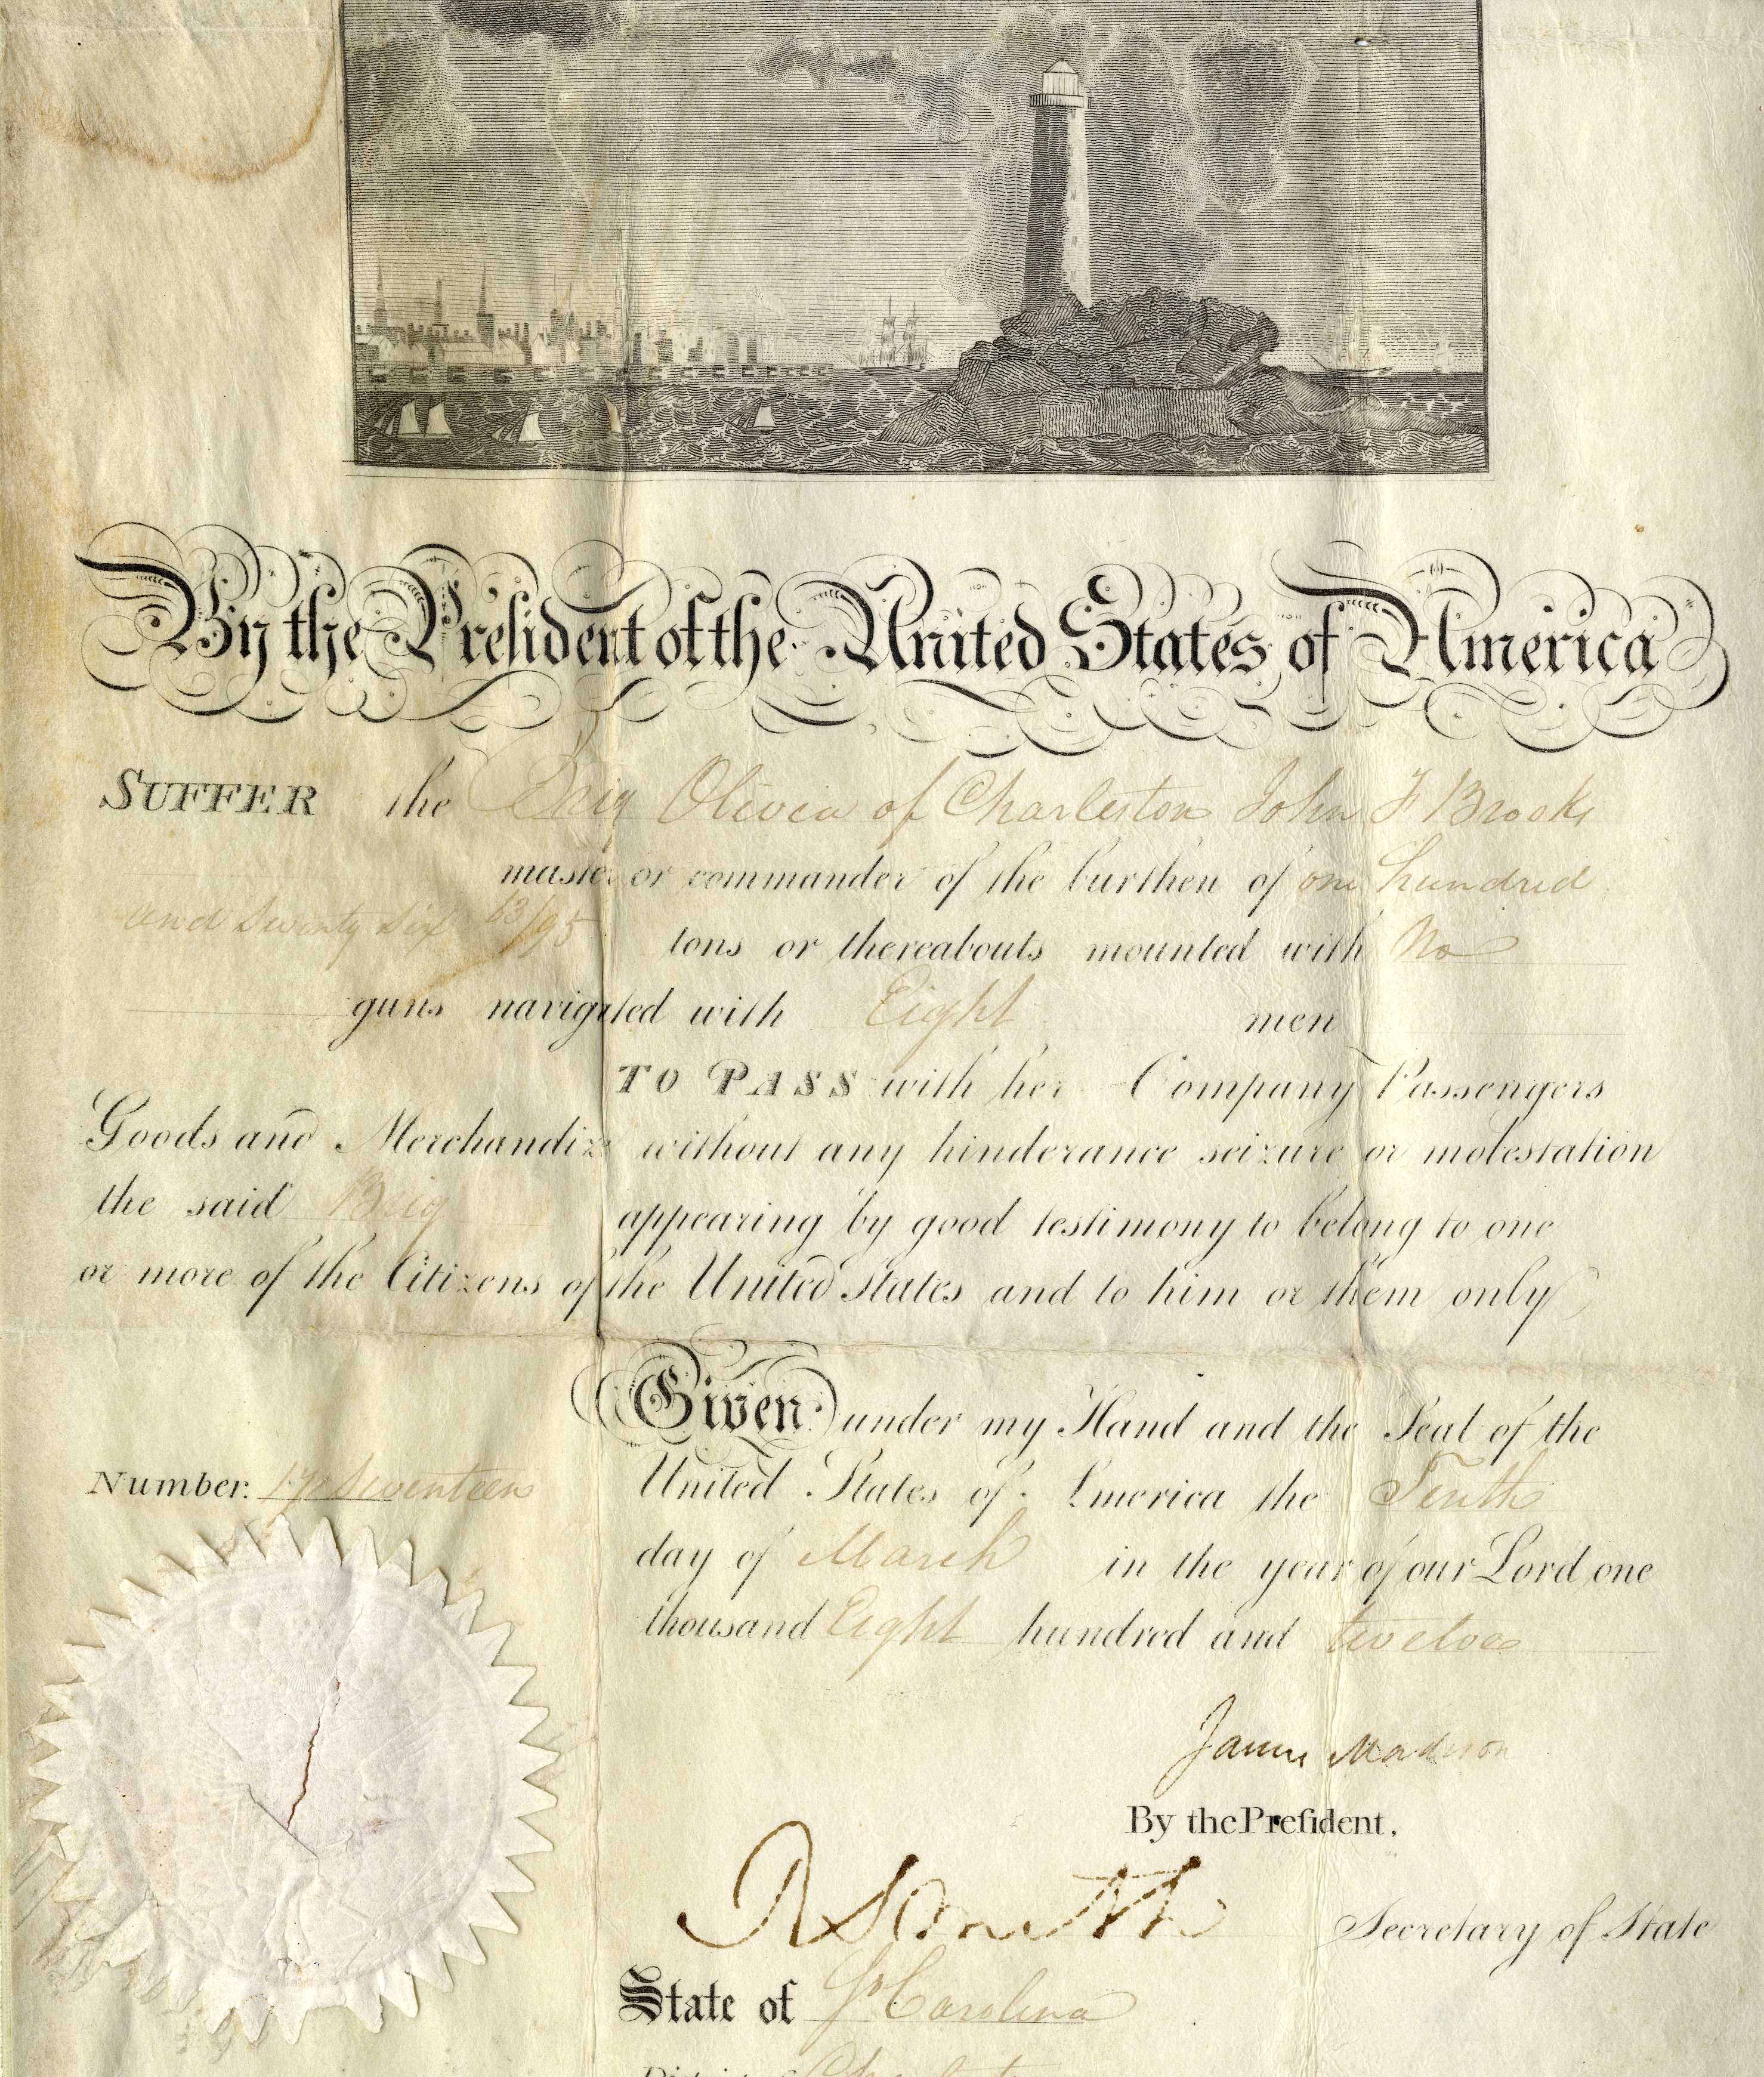 By the President of the United States of America
SUFFER the Brig Olivia of Charleston John F Brooks
master or commander of the burthen of one hundred
and Seventy Six 13/95 tons or thereabouts mounted with No
guns navigated with Eight men
TO PASS with her Company Passengers
Goods and Merchandize without any hinderance seizure or molestation
the said Brig appearing by good testimony to belong to one
or more of the Citizens of the United States and to him or them only
Given under my Hand and the Seal of the
Number. 17 Seventeen United States of America the Tenth
day of March in the year of our Lord one
thousand Eight hundred and twelve
James Madison
By the President,
R Smith Secretary of State
State of So Carolina
District of